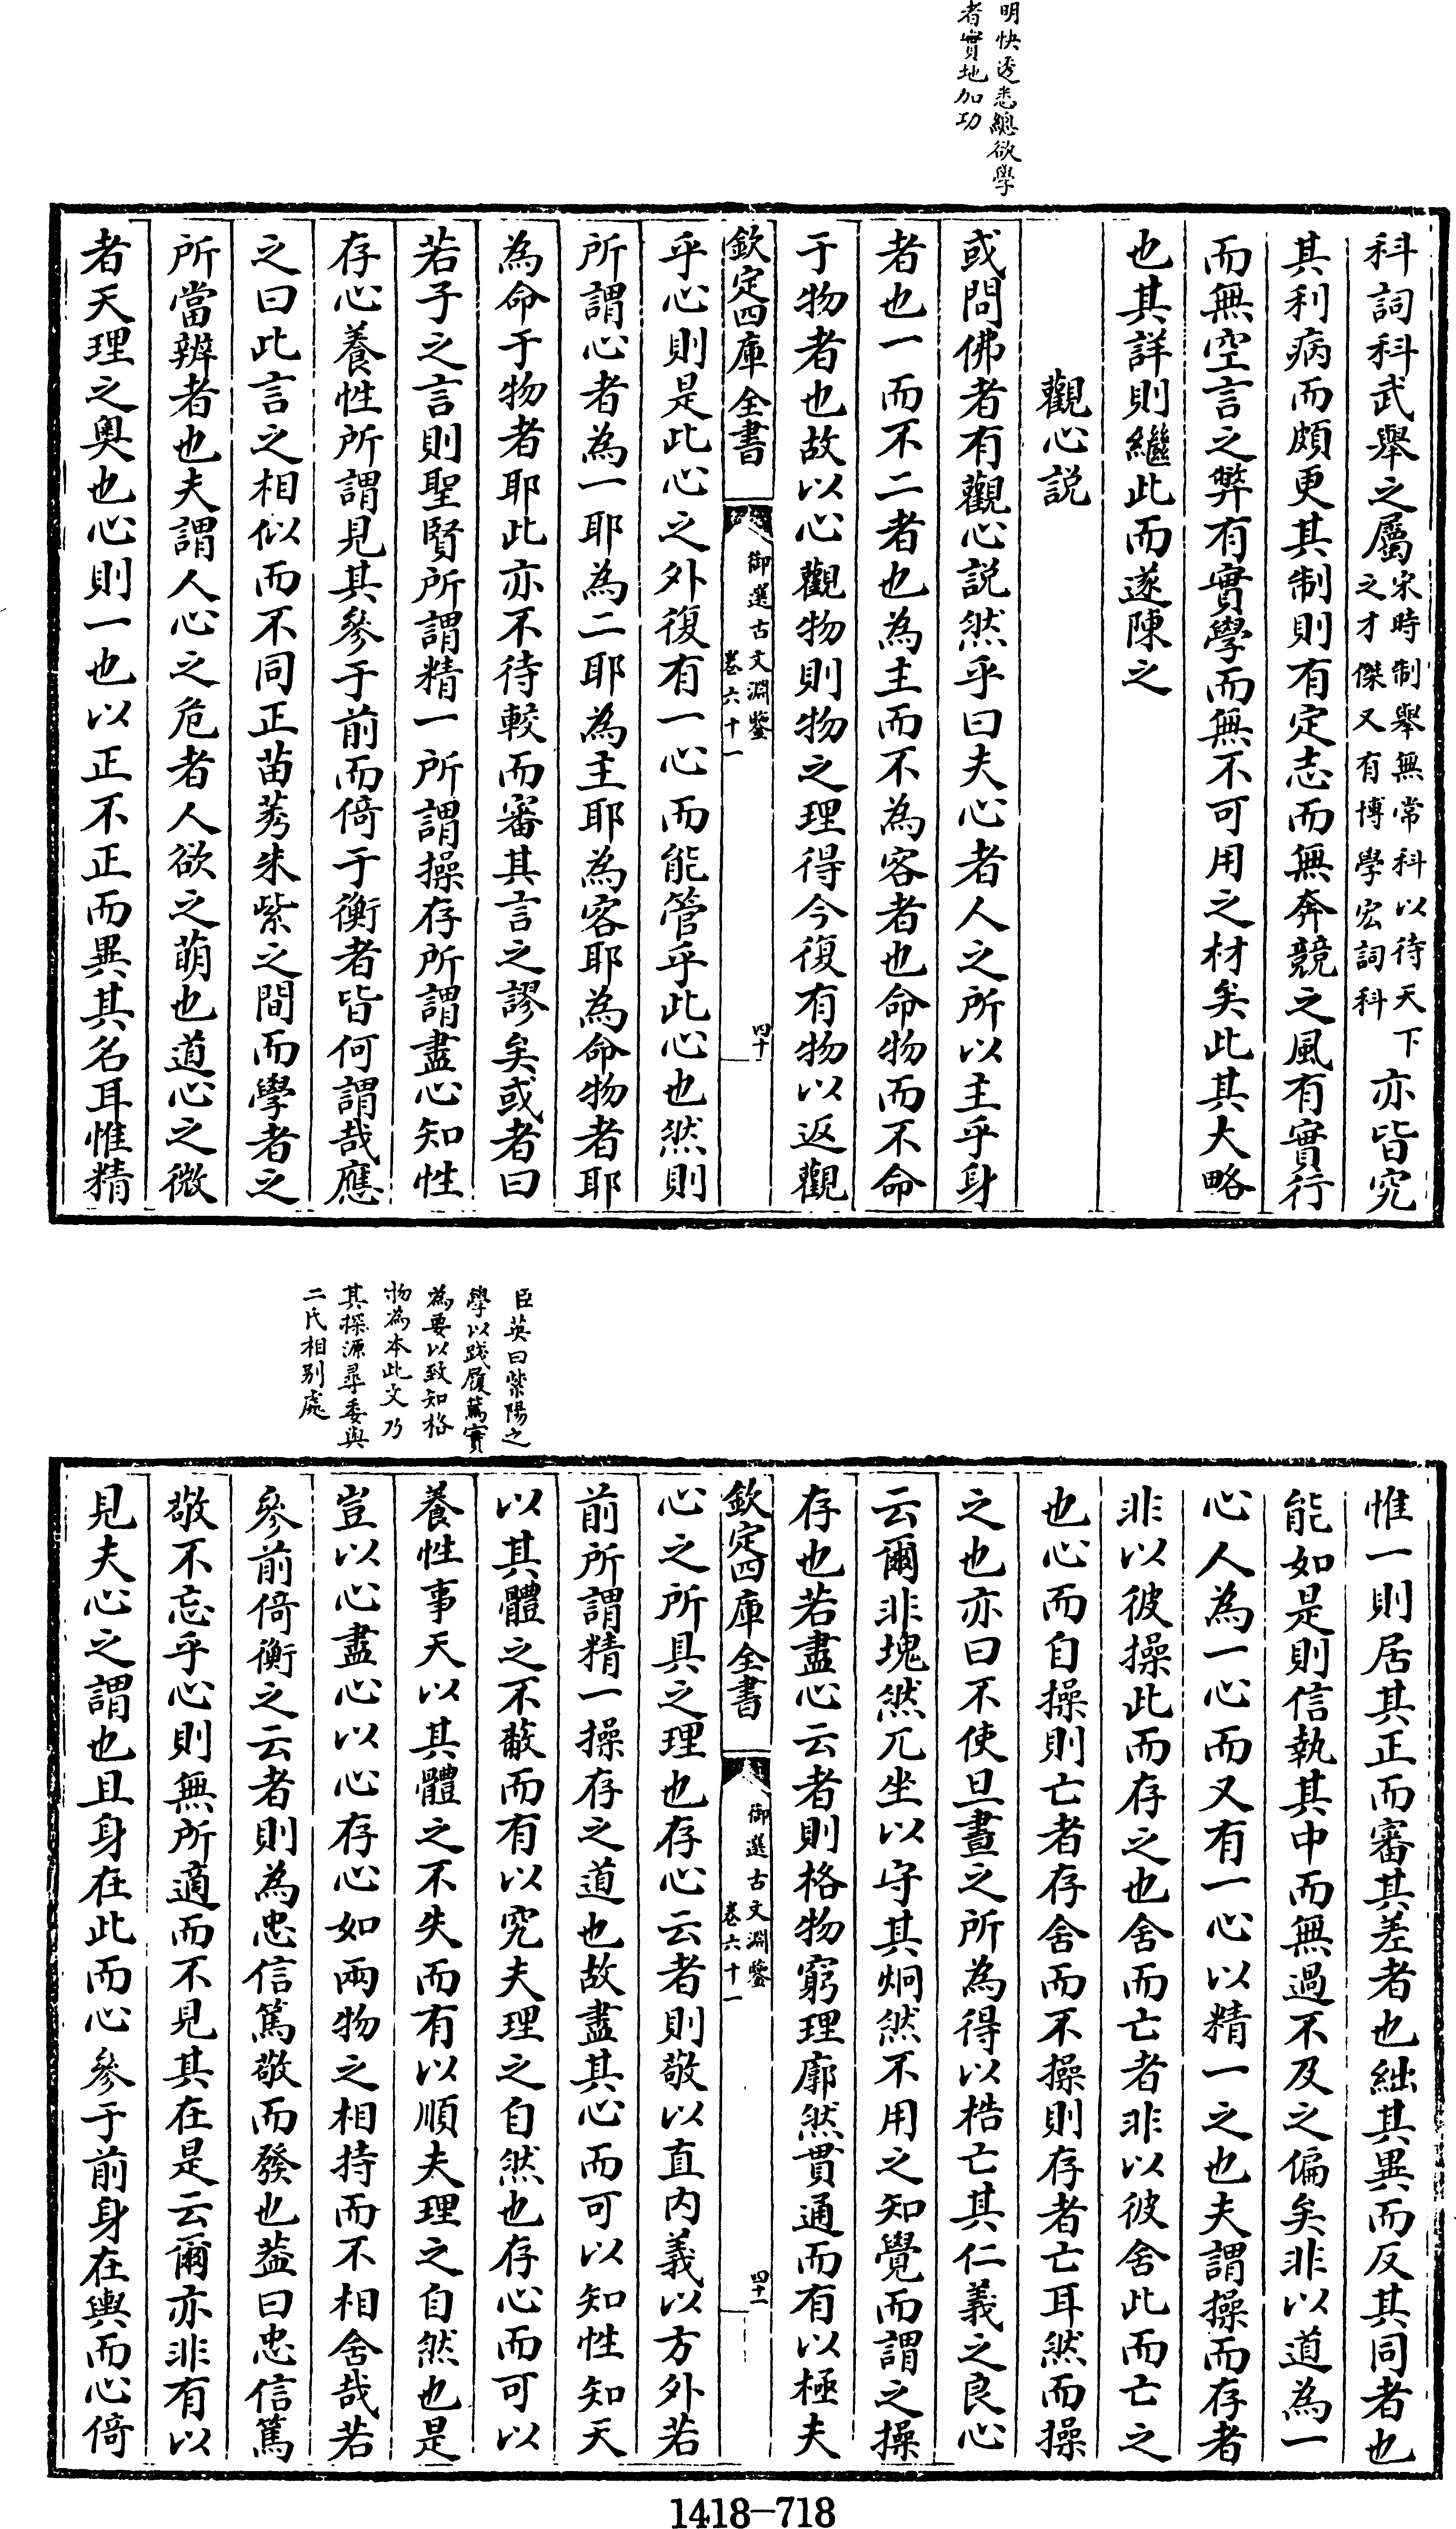 明快透悉總欲學
者實地加功
科詞科武舉之屬宋時制舉無常科以待天下之才傑又有博學宏詞科亦皆究
其利病而頗更其制則有定志而無奔競之風有實行
而無空言之弊有實學而無不可用之材矣此其大略
也其詳則繼此而遂陳之
觀心説
或問佛者有觀心説然乎曰夫心者人之所以主乎身
者也一而不二者也為主而不為客者也命物而不命
于物者也故以心觀物則物之理得今復有物以返觀
欽定四庫全書
御選古文淵鑒
卷六十一
四十
乎心則是此心之外復有一心而能管乎此心也然則
所謂心者為一耶為二耶為主耶為客耶為命物者耶
為命于物者耶此亦不待較而審其言之謬矣或者曰
若子之言則聖賢所謂精一所謂操存所謂盡心知性
存心養性所謂見其參于前而倚于衡者皆何謂哉應
之曰此言之相似而不同正苗莠朱紫之間而學者之
所當辨者也夫謂人心之危者人欲之萌也道心之微
者天理之奥也心則一也以正不正而異其名耳惟精
臣英曰紫陽之
學以踐履篤實
為要以致知格
物為本此文乃
其探源尋委與
二氏相别處
惟一則居其正而審其差者也絀其異而反其同者也
能如是則信執其中而無過不及之偏矣非以道為一
心人為一心而又有一心以精一之也夫謂操而存者
非以彼操此而存之也舍而亡者非以彼舍此而亡之
也心而自操則亡者存舍而不操則存者亡耳然而操
之也亦曰不使旦晝之所為得以梏亡其仁義之良心
云爾非塊然兀坐以守其炯然不用之知覺而謂之操
存也若盡心云者則格物窮理廓然貫通而有以極夫
欽定四庫全書
御選古文淵鑒
卷六十一
四十一
心之所具之理也存心云者則敬以直内義以方外若
前所謂精一操存之道也故盡其心而可以知性知天
以其體之不蔽而有以究夫理之自然也存心而可以
養性事天以其體之不失而有以順夫理之自然也是
豈以心盡心以心存心如兩物之相持而不相舍哉若
參前倚衡之云者則為忠信篤敬而發也葢曰忠信篤
敬不忘乎心則無所適而不見其在是云爾亦非有以
見夫心之謂也且身在此而心參于前身在輿而心倚
1418-718